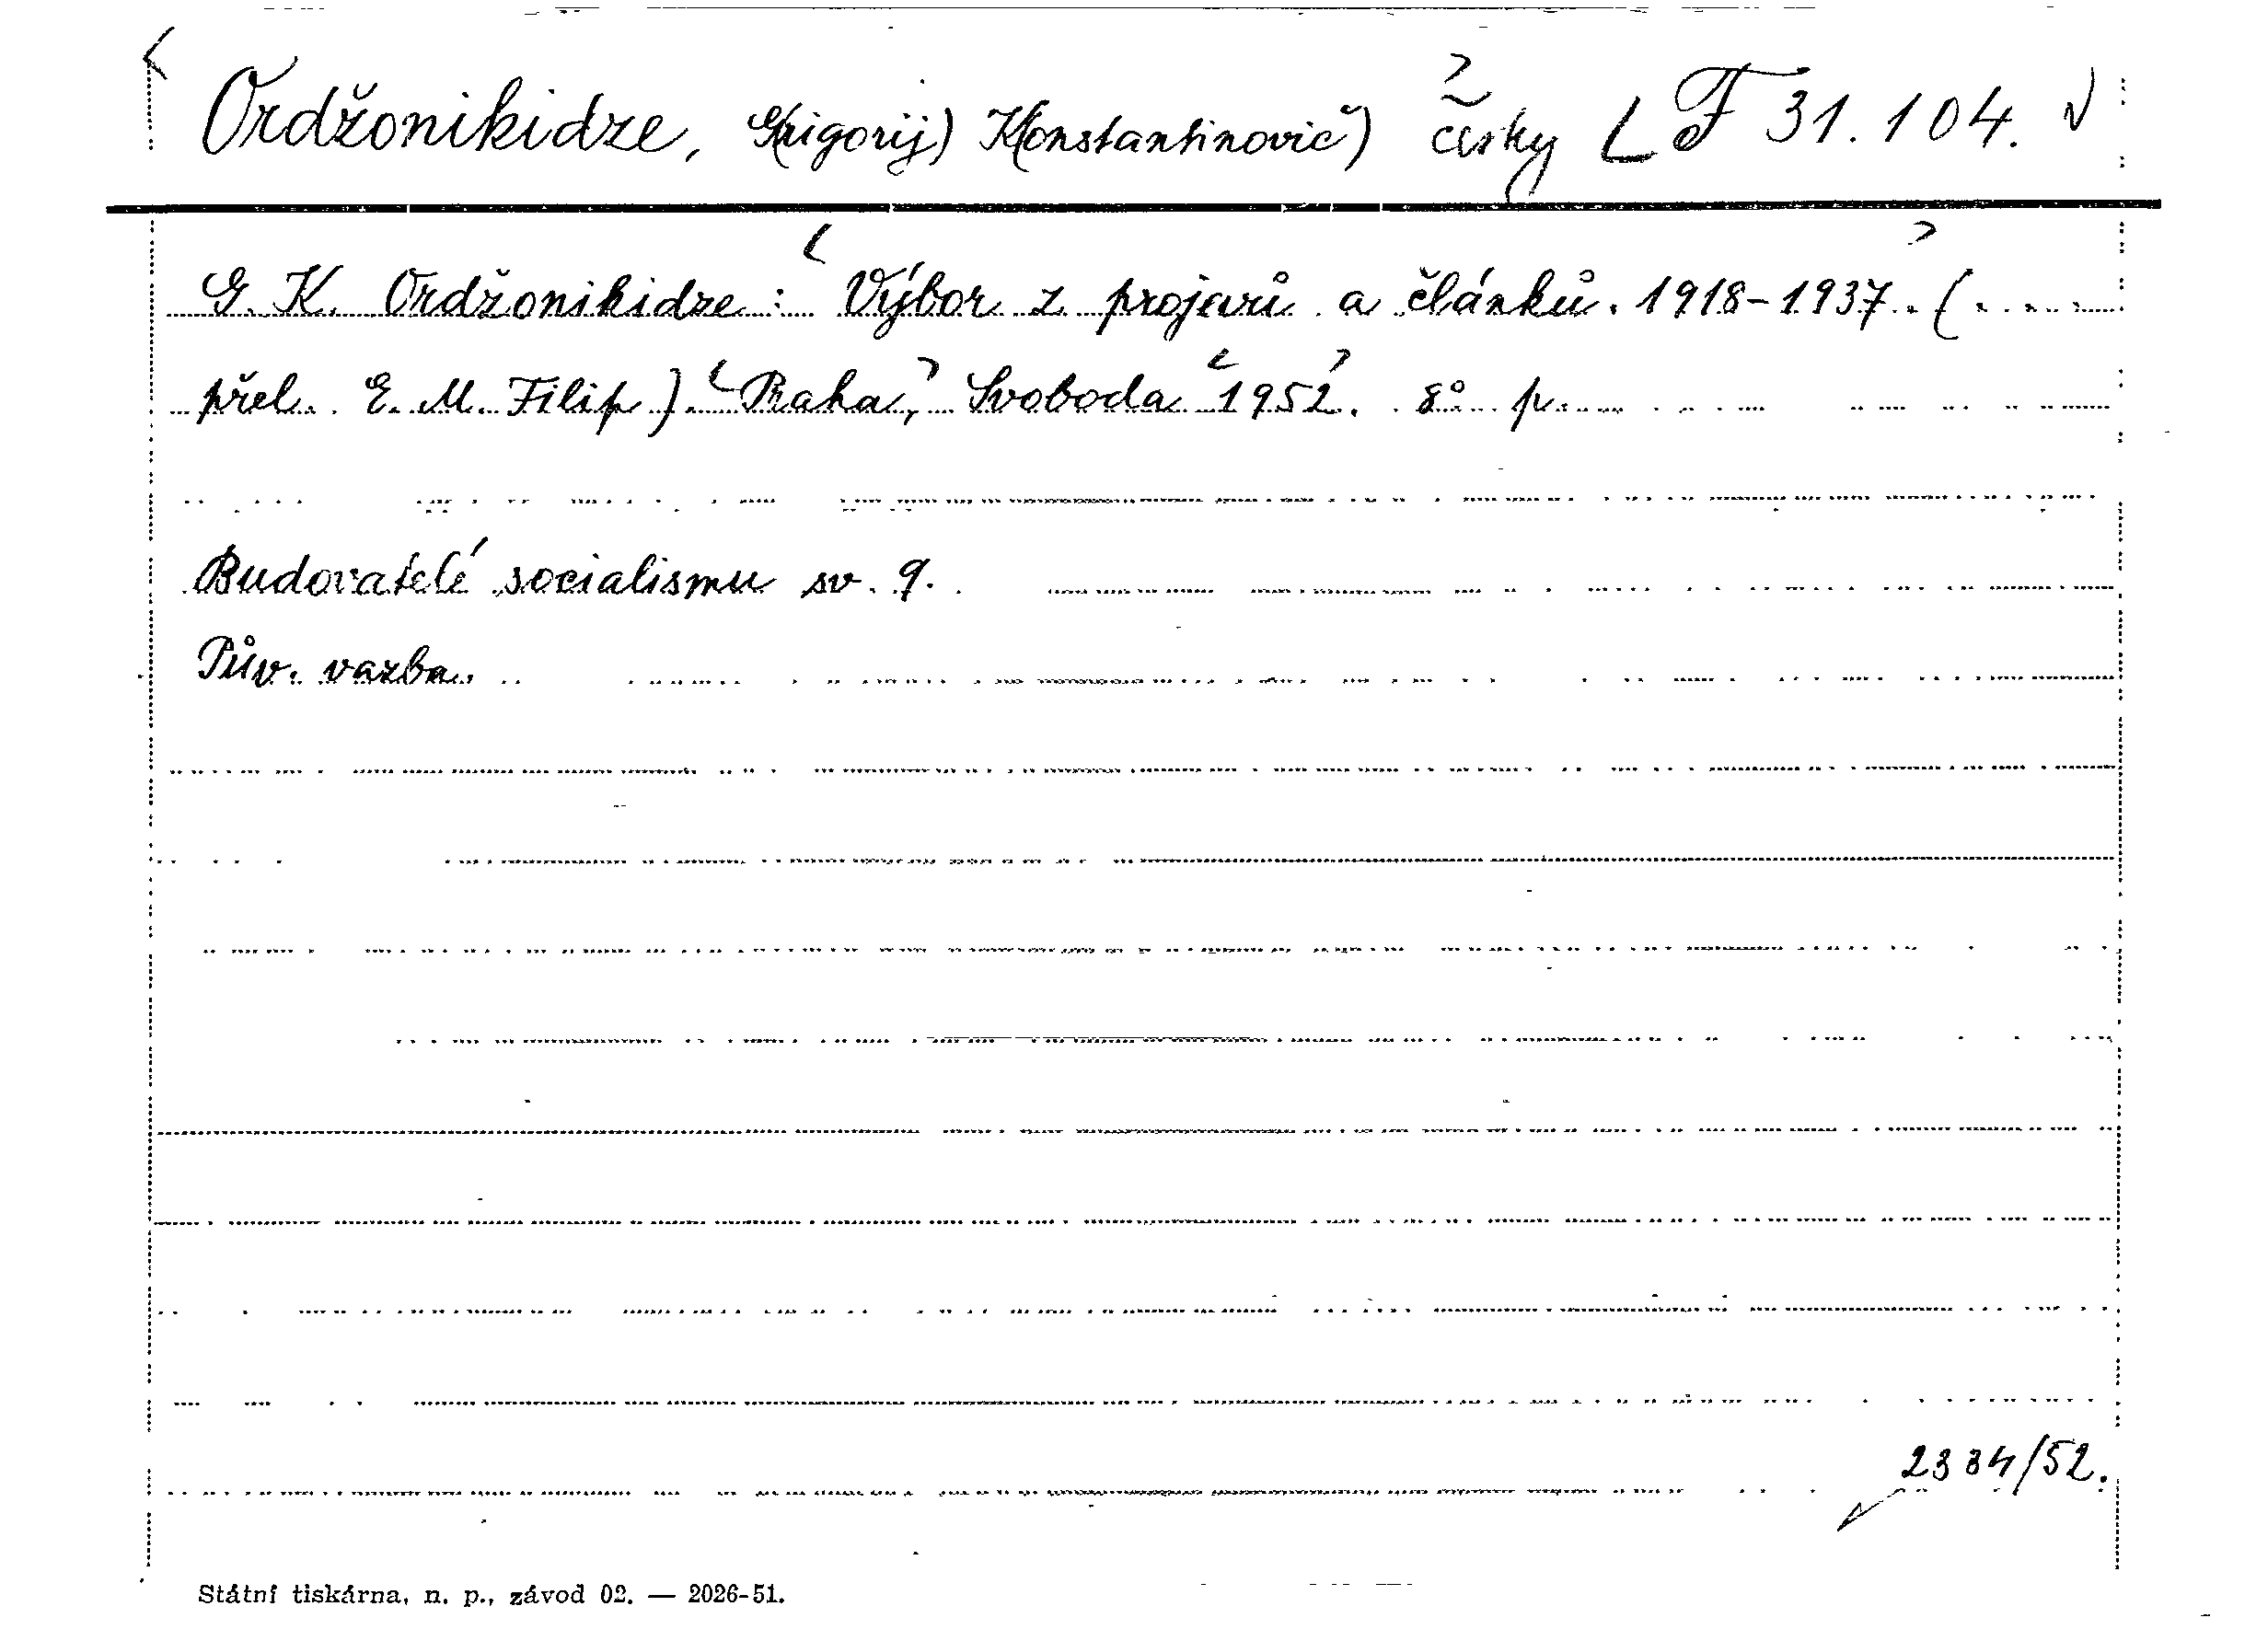 Ordžonikidze, G(rigorij) K(onstantinovič) česky F 31.104.
G. K. Ordžonikidze: Výbor z projevů a článků. 1918-1937. (....
přel. E. M. Filip). Praha, Svoboda 1952. 8° p.
Budovatelé socialismu sv. 9.
Pův. vazba.
2384/52.
Státní tiskárna, n. p., závod 02. — 2026-51.